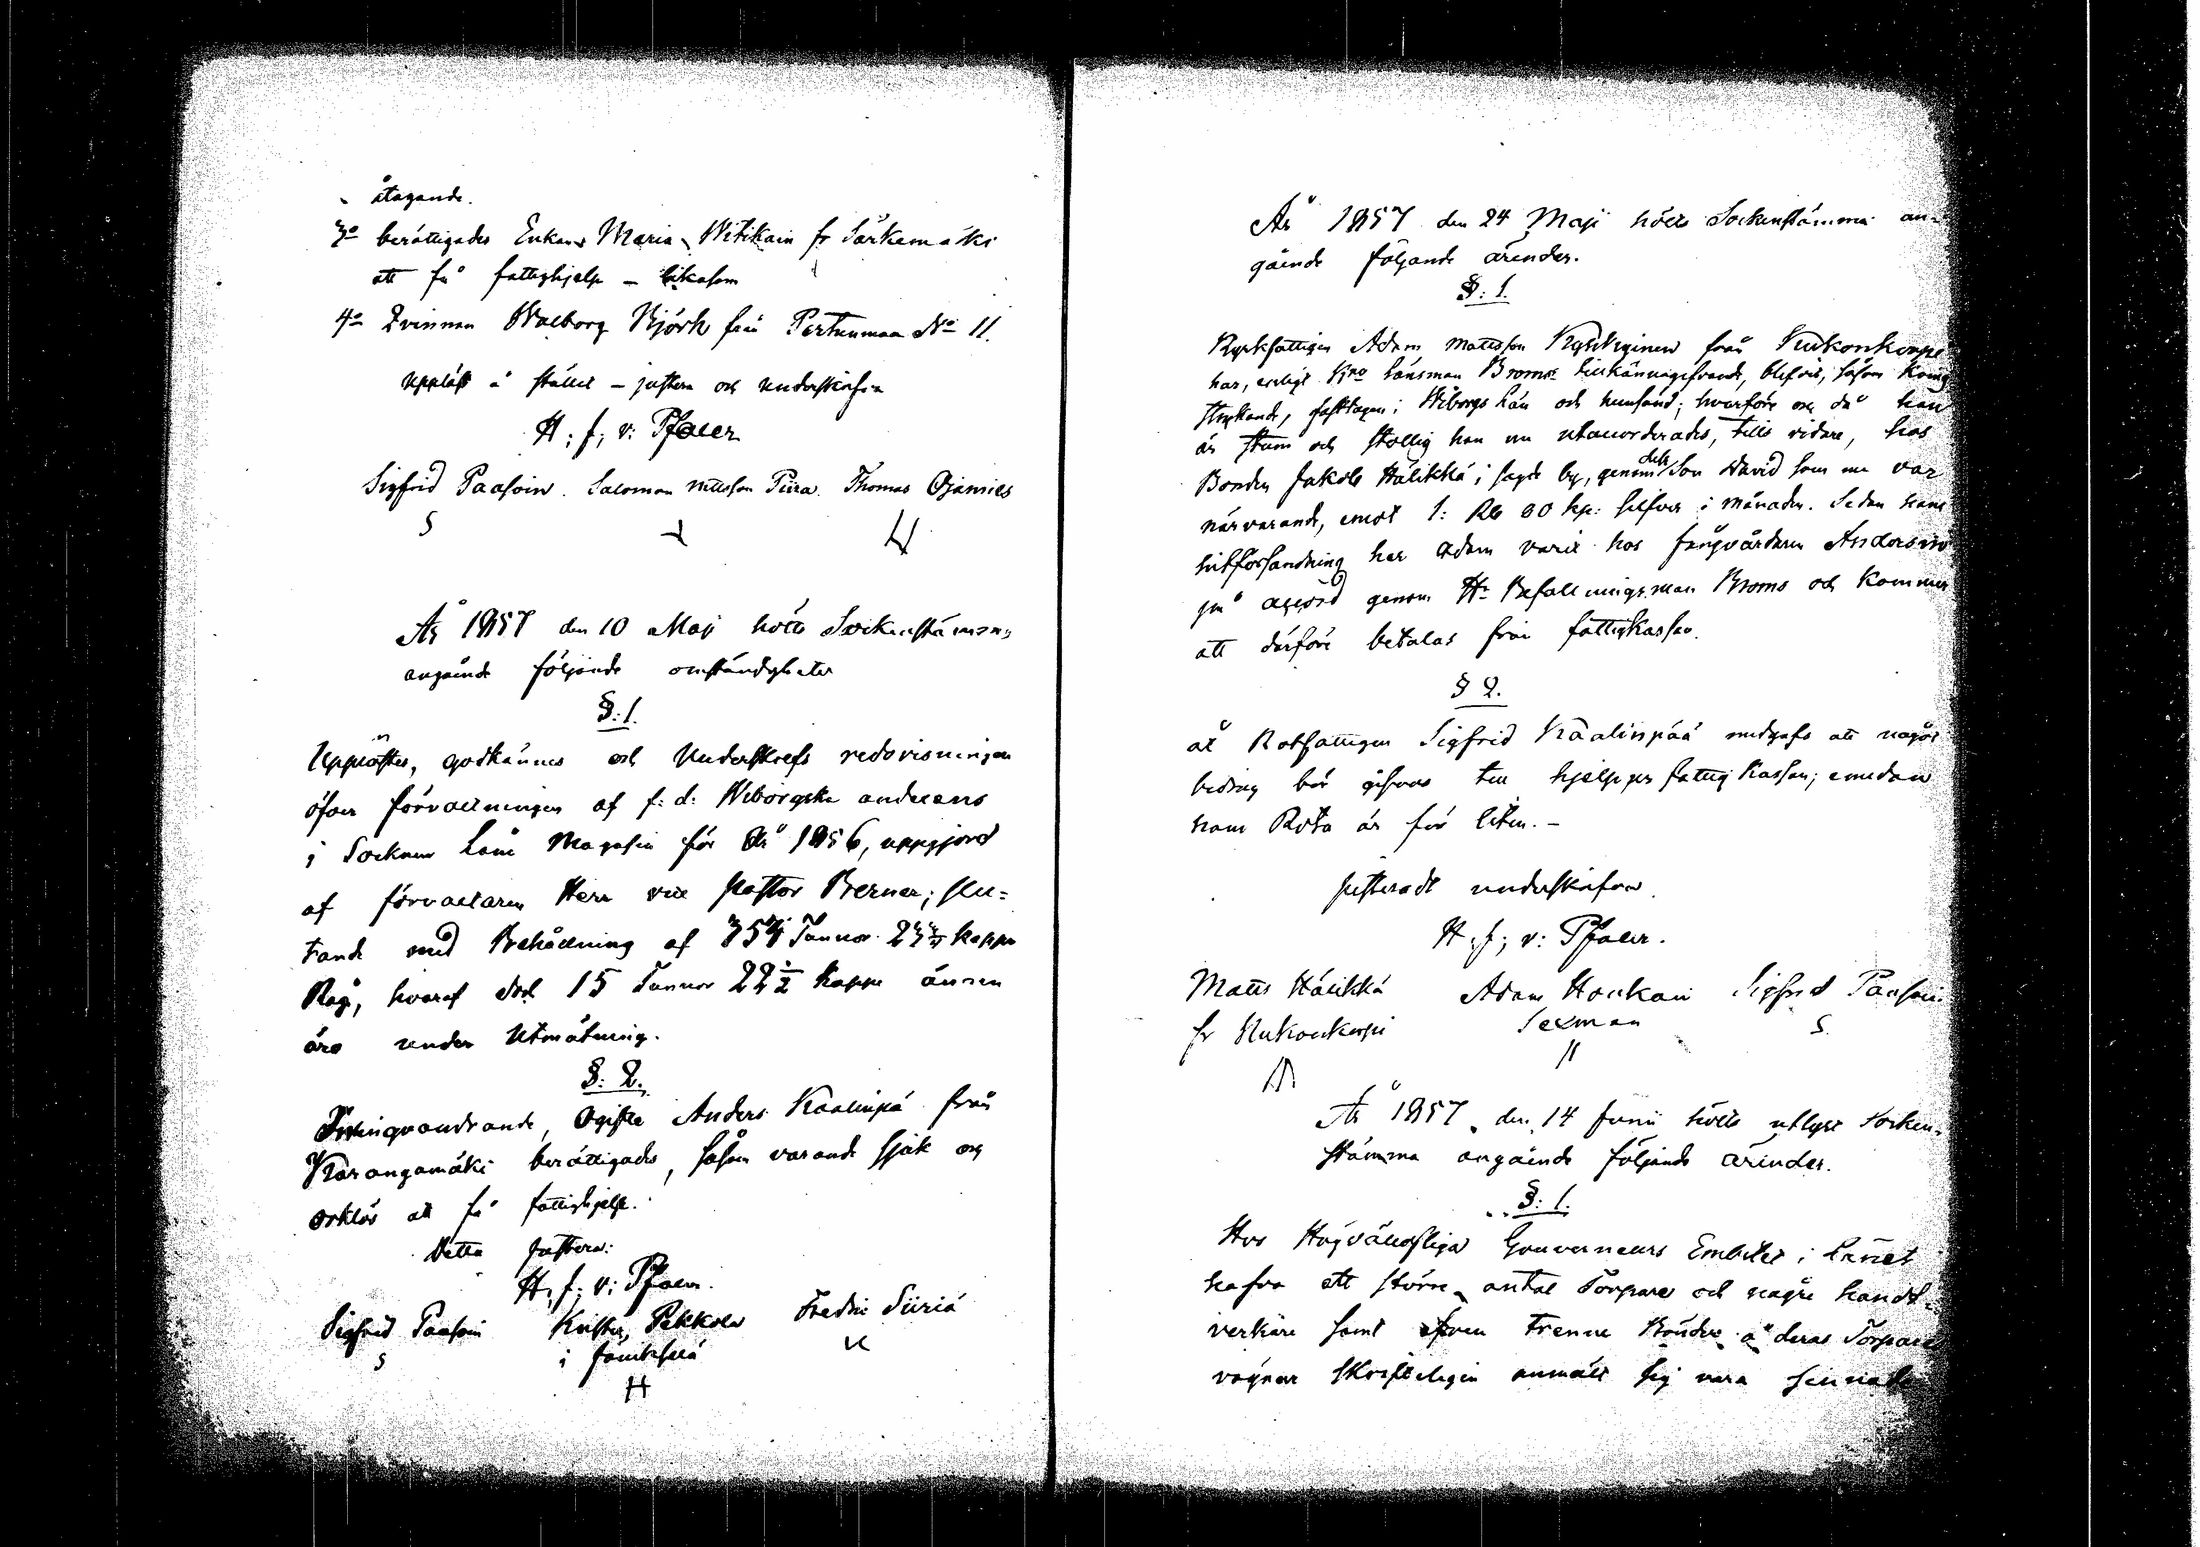 åtagande.
3o berättigades Enkan Maria Witikain fr Särkemäki
att få fattighjelp – likasom
4o Qvinnan Walborg Björk från Pertunmaa No 11.
Uppläst å stället – justera och underskrifva
H; f; v: Pfaler
Sigfrid Paasoin. Salomon Nilsson Piira. Thomas Ojamies
S
År 1857 den 10 Maji hölts Sockenstämma
angående följande omständigheter
§: 1.
Upplästes, godkännes och Underskrefs redovisningen
öfver förvaltningen af f: d: Wiborgska andelens
i Socknens Låne Magasin för År 1856, uppgjord
af förvaltaren Herr vice Pastor Berner; slu-
tande med Behållning af 354 Tunnor kappe
Råg, hvaraf dock 15 Tunnor 22 1/2 kappe ännu
äro under Utmätning.
§: 2.
Kringvandrande, Ogifte Anders Kaalinpä från
Karangamäki berättigades, såsom varande sjuk og
orklös att få fattighjelp.
Detta justera:
H; f; v: Pfaler.
Sigfrid Paasoin Krister Pekkola Fredric Siiriä
S i
H
År 1857 den 24 Maji hölts Sockenstämma an-
gående följande ärender.
§: 1.
Kyrkfattigen Adam Mattsson från Kukonkorpi
har, enligt Länsman Broms tillkännagifvande, blifvit, såsom kring
strykande, fasttagen i Wiborgs Län och hemsänd; hvarföre og då han
är stum och stollig han nu utackorderades, tills vidare, hos
Bonden Jakob Hälikkä i sagde by, genom dess Son David som nu var
närvarande, emot 1: Rb 80 kp: silfver i månaden. Sedan hans
hitförsandning har Adam varit hos fångvårdaren Andersin
på accord genom Hr Befallningsman Broms och kommer
att därföre betalas från fattigkassan.
§ 2.
åt Rotfattigen Sigfrid Kaalinpää medgafs att något
bidrag bör gifvas till hjelp per fattig Kassan; emedan
hans Rota är för liten. –
Justeradt underskrifva
H; f; v: Pfaler.
Matts Hälikkä Adam Houkain Sigfrid Paasoin
fr Kukonkorpi Sexman S.
År 1857 den 14 Junii hölts utlyst Socken-
stämma angående följande ärender.
§: 1.
Hos Högvälloflige Gouverneurs Embetet i Länet
hafva ett större antal Torpare och någre handt-
verkare samt äfven trenne Bönder å deras Torpares
vägnar skrifteligen anmält sig vara